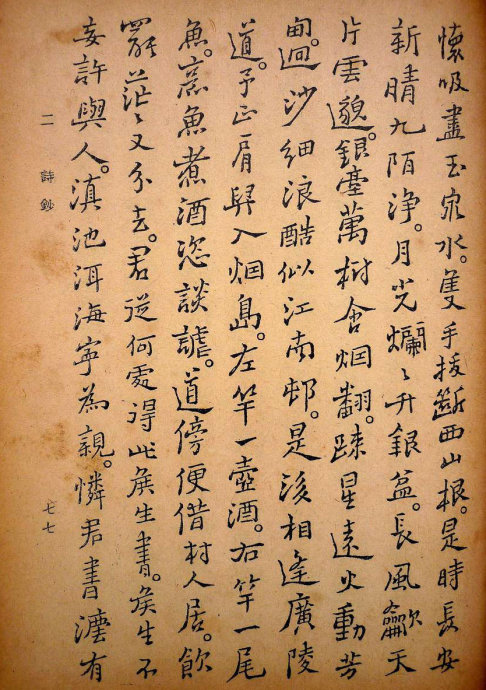 懷吸盡玉泉水。隻手拔斷西山根。是時長安
新晴九陌淨。月光爛〻升銀盆。長風龡天
片雲邈。銀臺萬樹含烟翻。疎星遠火動芳
甸。迴沙細浪酷似江南邨。是後相逢廣陵
道。予正肩舁入烟島。左竿一壺酒。右竿一尾
魚。烹魚煮酒恣談謔。道傍便借村人居。飲
罷茫〻又分去。君從何處得此侯生書。侯生不
妄許與人。滇池洱海寧為親。憐君書灋有
二 詩鈔
七七